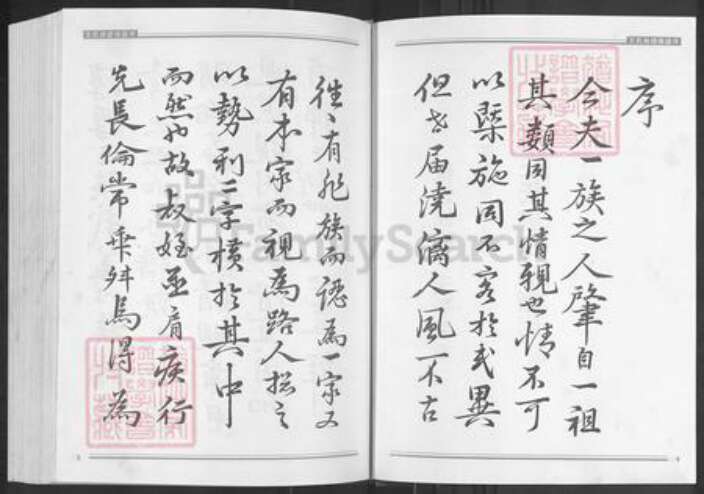 序
今夫一族之人肇自一祖
其類同其情親也情不可
以槩施固不容於或異
但世届澆漓人風不古
徃〻有非族而認為一家又
有本家而視為路人揔之
以勢利二字橫於其中
而然也故叔姪並肩疾行
先長倫常乖舛焉得為
FamilySearch